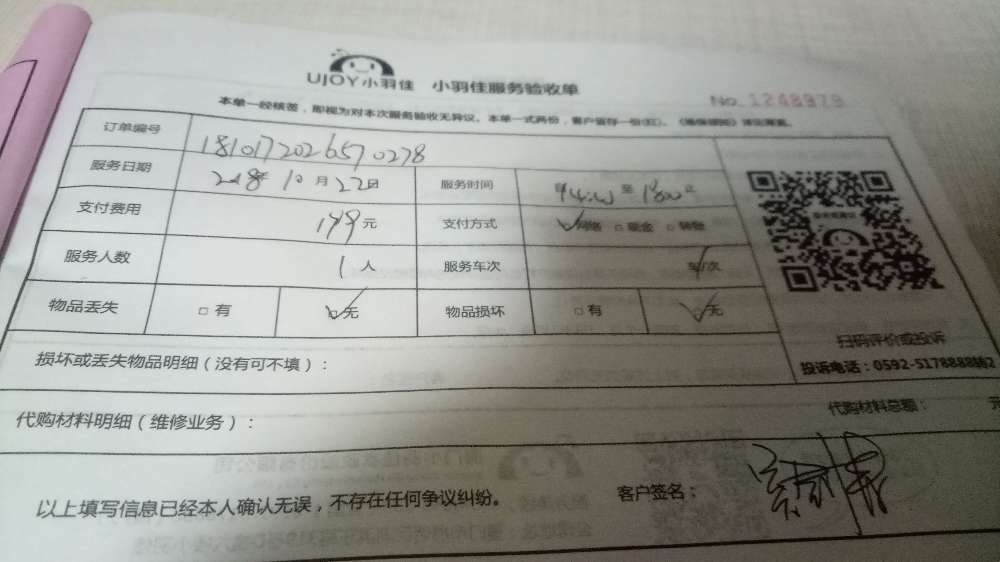 UJOY小羽佳 小羽佳服务验收单
No. 1248979
本单一经核签，即视为对本次服务验收无异议。本单一式两份，客户留存一份(红)。
订单编号 181017202657 0278
服务日期 2018年10月22日 服务时间 至 18:00 止
支付费用 199元 支付方式 ☑网络 □现金 □转账
服务人数 1人 服务车次 车/次
物品丢失 □有 ☑无 物品损坏 □有 ☑无
扫码评价或投诉
投诉电话：0592-5178888转2
损坏或丢失物品明细（没有可不填）：
代购材料明细（维修业务）： 代购材料总额： 元
以上填写信息已经本人确认无误，不存在任何争议纠纷。 客户签名：